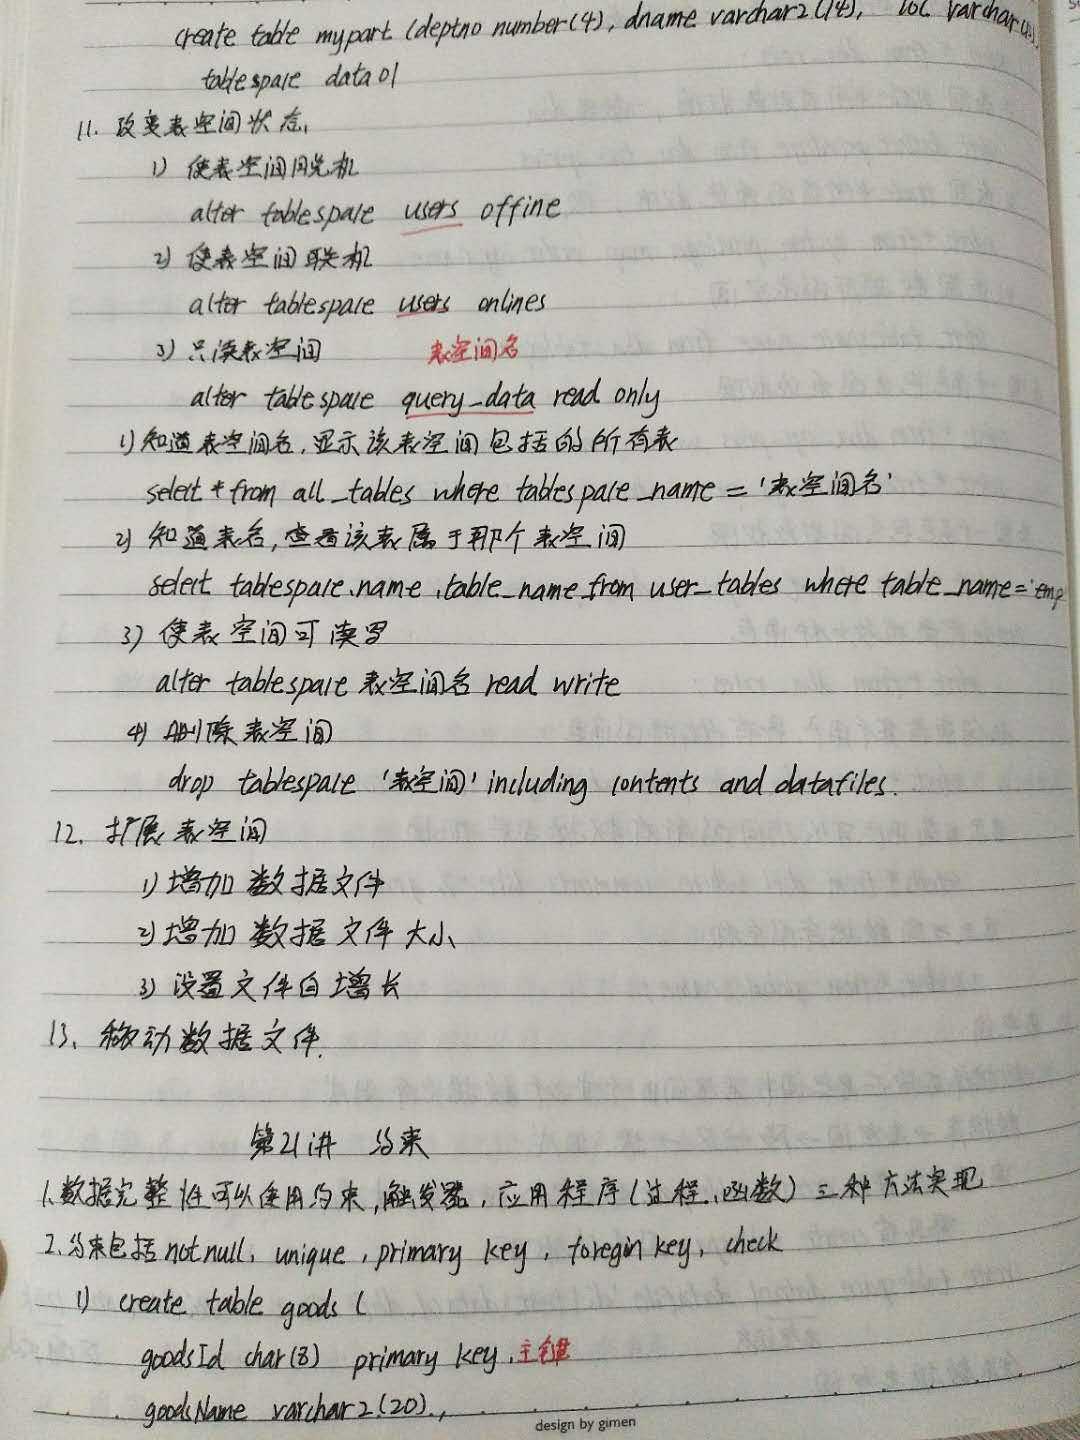 create table mypart (deptno number(4), dname varchar2(14), loc varchar
tablespace data01
11. 改变表空间状态
1) 使表空间脱机
alter tablespace users offine
2) 使表空间联机
alter tablespace users onlines
3) 只读表空间 表空间名
alter tablespace query_data read only
1) 知道表空间名,显示该表空间包括的所有表
select * from all_tables where tablespace_name = '表空间名'
2) 知道表名,查看该表属于那个表空间
select tablespace.name ,table_name from user_tables where table_name='emp
3) 使表空间可读写
alter tablespace 表空间名 read write
4) 删除表空间
drop tablespace '表空间' including contents and datafiles.
12. 扩展表空间
1) 增加数据文件
2) 增加数据文件大小
3) 设置文件自增长
13. 移动数据文件.
第21讲 约束
1.数据完整性可以使用约束,触发器,应用程序(过程、函数)三种方法实现
2.约束包括 not null, unique, primary key, foregin key, check
1) create table goods (
goodsId char(8) primary key, 主键
goodsName varchar2(20),
design by gimen